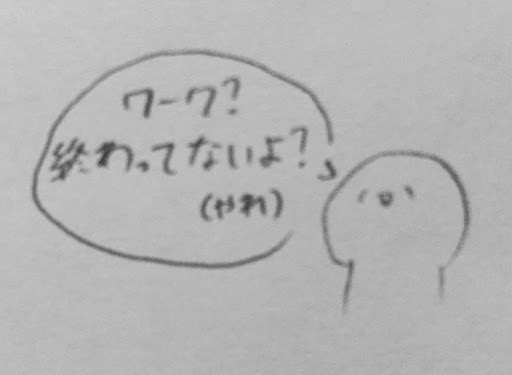 ワーク?
終わってないよ?
(やれ)